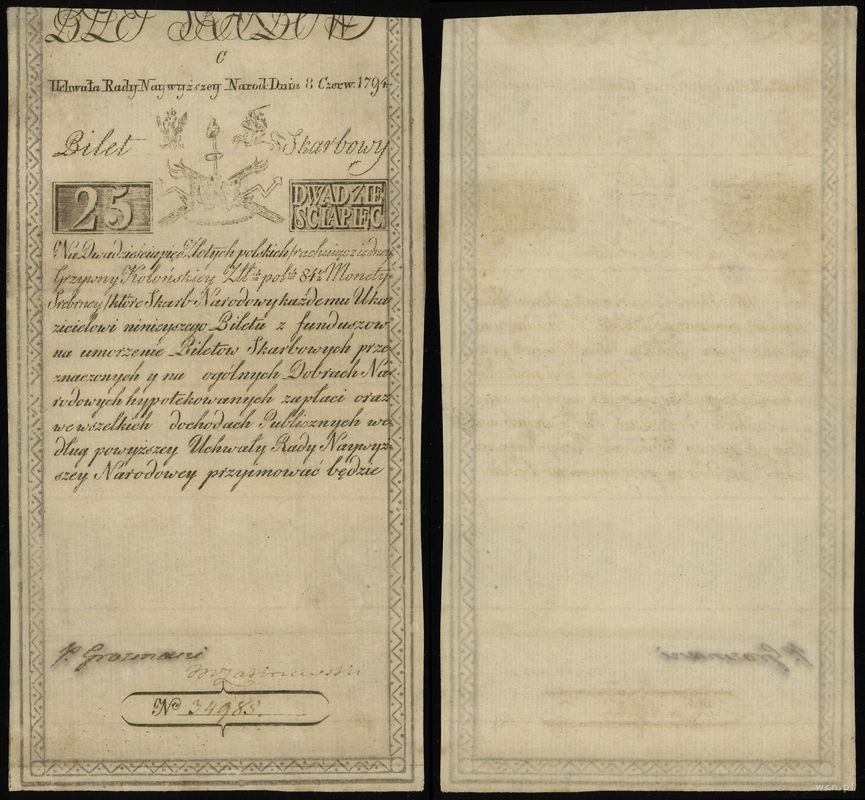 BILET SKARBOWY
C
Uchwała Rady Naywyższey Narod: Dnia 8 Czerw. 1794
Bilet Skarbowy
25 DWADZIE
ŚCIAPIĘĆ
Na Dwadzieściapięć Złotych polskich /rachuiąc z iedney
Grzywny Kolońskiey Złt: pol: 84½ Monety
Srebrney/ które Skarb Narodowy każdemu Uka-
zicielowi ninieyszego Biletu z funduszow
na umorzenie Biletow Skarbowych prze-
znaczonych y na ogólnych Dobrach Na-
rodowych hypotekowanych zapłaci oraz
we wszelkich dochodach Publicznych we-
dług powyższey Uchwały Rady Naywyż-
szey Narodowey przyimować będzie
P. Grozmani
No 34985.
wcn.pl